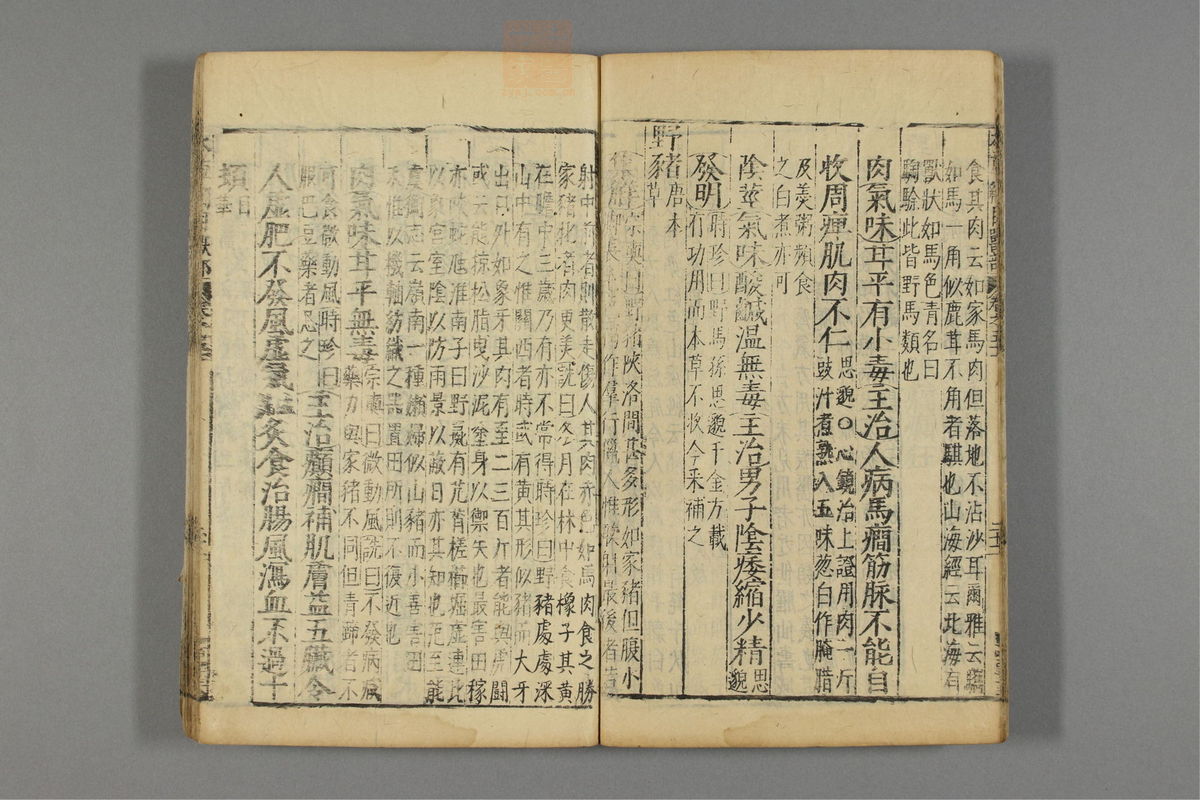 食其肉云如家馬肉但落地不沾沙耳爾雅云
如馬一角似鹿茸不角者騏也山海經云北海有
獸狀如馬色青名曰
騊駼此皆野馬類也
肉氣味甘平有小毒主治人病馬癎筋脉不能自
收周痺肌肉不仁思邈〇心鏡治上證用肉一斤
豉汁煮熟入五味葱白作腌腊
及羹粥頻食
之白煮亦可
陰莖氣味酸鹹溫無毒主治男子陰痿縮少精思
邈
發明時珍曰野馬孫思邈千金方載
有功用而本草不收今采補之
野豬唐本
草
集解宗奭曰野豬陝洛間甚多形如家豬但腹小
脚長 作羣行獵人惟 射最後者若
射中前者則散走傷人其肉赤色如馬肉食之勝
家豬牝者肉更美詵曰冬月在林中食橡子其黃
在膽中三歲乃有亦不常得時珍曰野豬處處深
山中有之惟關西者時或有黃其形似豬而大牙
出口外如象牙其肉有至二三百斤者能與虎鬭
或云能掠松脂曳沙泥塗身以禦矢也最害田稼
亦啖蛇虺淮南子曰野彘有艽莦槎櫛堀虛連比
以象宮室陰以防雨景以蔽日亦其知也范至能
虞衡志云嶺南一種嬾婦似山豬而小善害田
禾惟以機軸紡織之器置田所則不復近也
肉氣味甘平無毒宗奭曰微動風詵曰不發病减
藥力與家豬不同但青蹄者不
可食微動風時珍曰
服巴豆藥者忌之
主治癲癎補肌膚益五臟令
人虛肥不發風虛氣 炙食治腸風瀉血不過十
頓